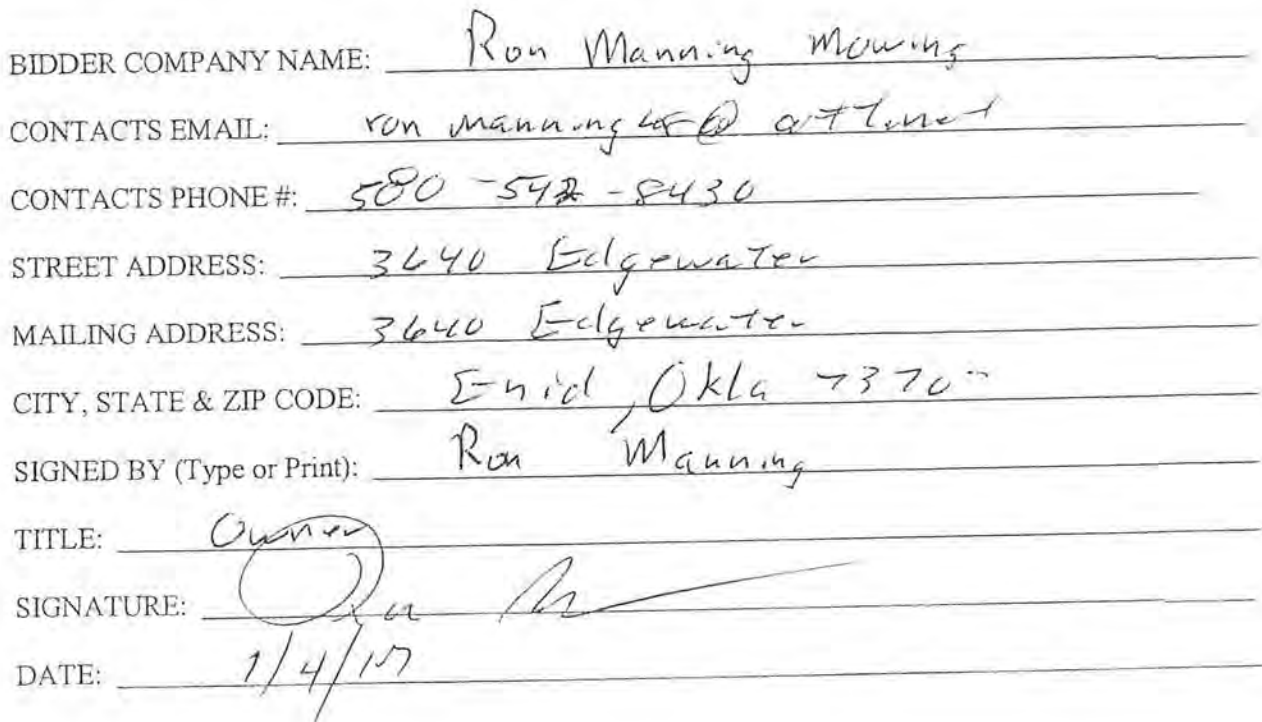 BIDDER COMPANY NAME: Ron Manning Mowing
CONTACTS EMAIL: ron manning @ att.net
CONTACTS PHONE #: 580-542-8430
STREET ADDRESS: 3640 Edgewater
MAILING ADDRESS: 3640 Edgewater
CITY, STATE & ZIP CODE: Enid, Okla
SIGNED BY (Type or Print): Ron Manning
TITLE: Owner
SIGNATURE:
DATE: 1/4/17